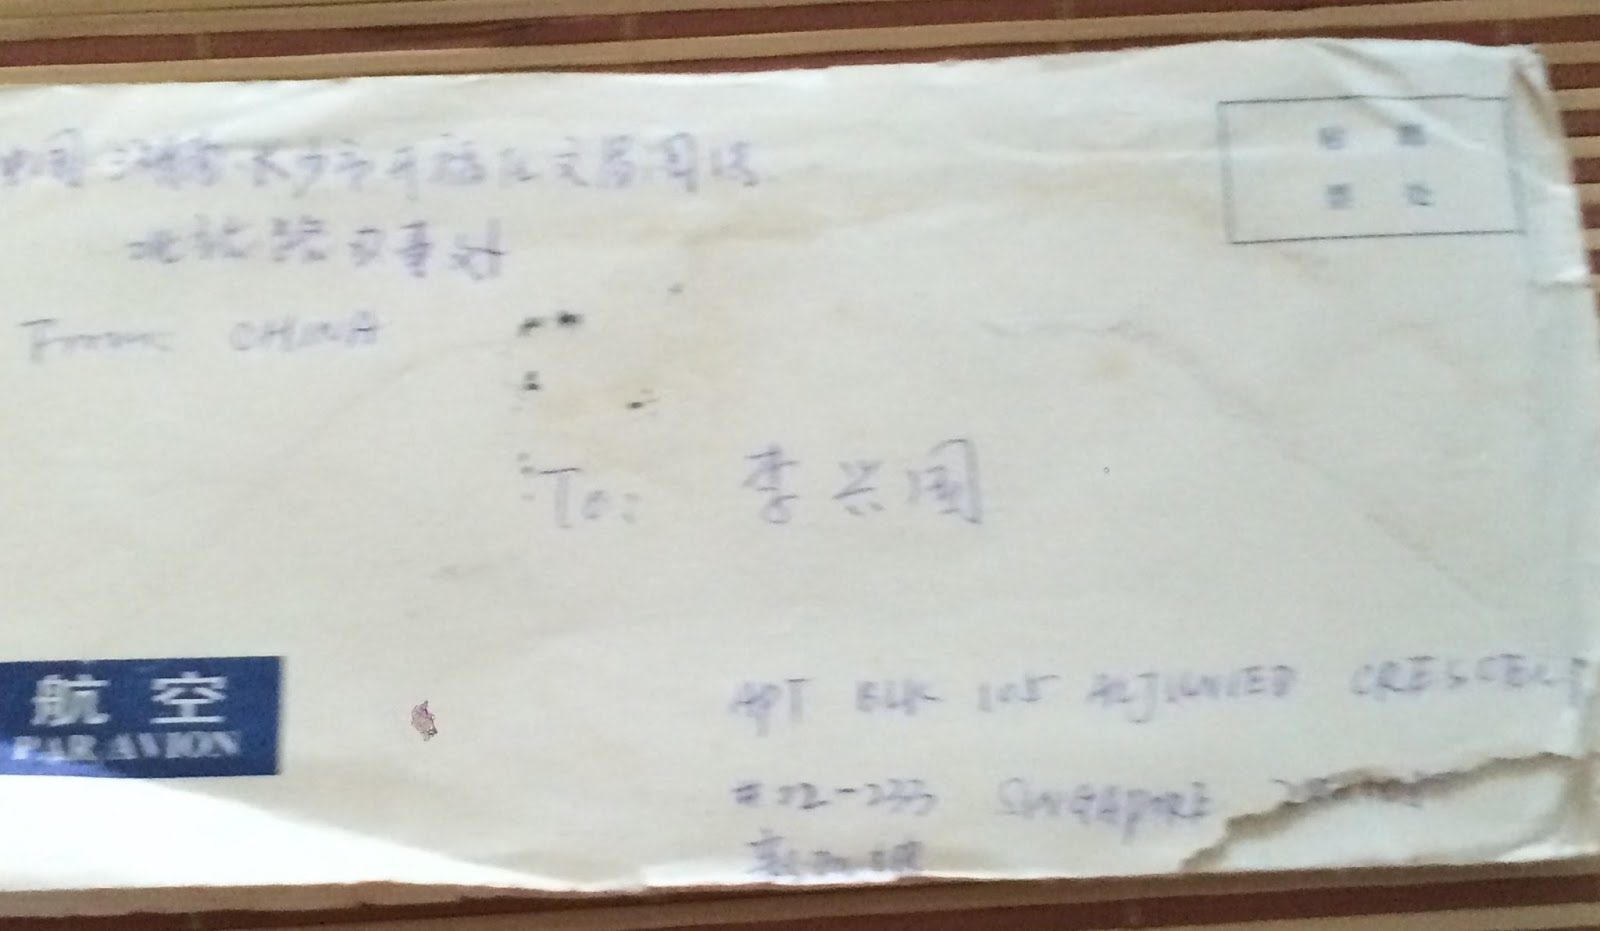 中国 湖南省长沙市开福区文昌阁
北站路办事处
From: CHINA
To: 李兴国
航空
PAR AVION
APT BLK 105 ALJUNIED CRESCENT
#02-233 SINGAPORE
新加坡